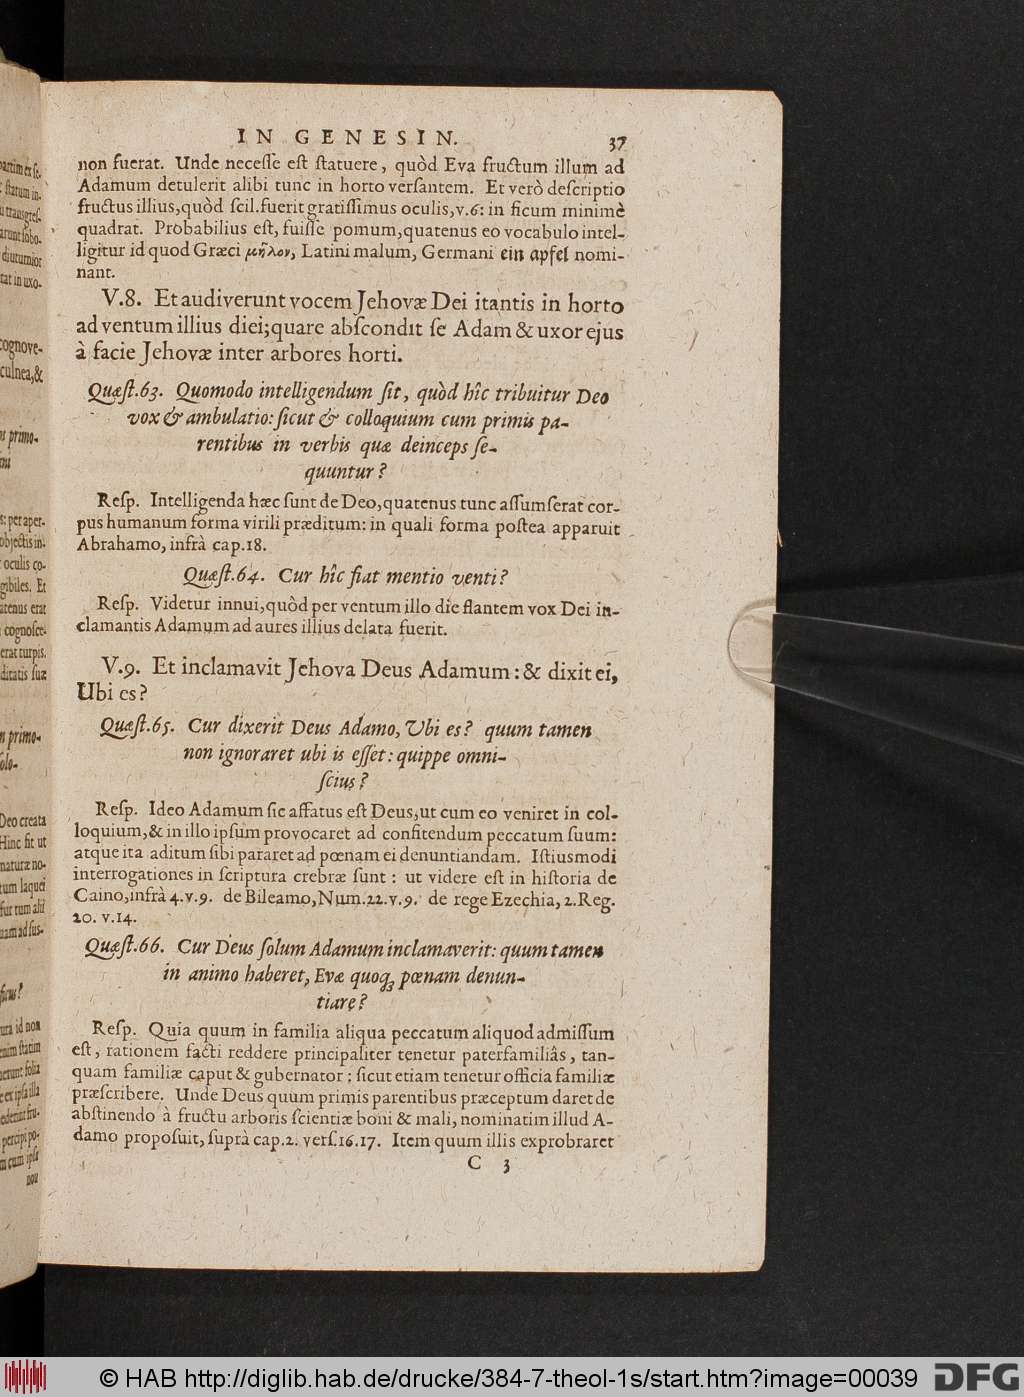 IN GENESIN. 37
non fuerat. Unde necesſe eſt ſtatuere, quòd Eva fructum illum ad
Adamum detulerit alibi tunc in horto verſantem. Et verò deſcriptio
fructus illius,quòd ſcil.fuerit gratiſſimus oculis,v.6: in ficum minimè
quadrat. Probabilius eſt, fuiſſe pomum,quatenus eo vocabulo intel-
ligitur id quod Græci μῆλον, Latini malum, Germani ein apfel nomi-
nant.
V.8. Et audiverunt vocem Jehovæ Dei itantis in horto
ad ventum illius diei;quare abſcondit ſe Adam & uxor ejus
à facie Jehovæ inter arbores horti.
Quæſt.63. Quomodo intelligendum ſit, quòd hîc tribuitur Deo
vox & ambulatio: ſicut & colloquium cum primis pa-
rentibus in verbis quæ deinceps ſe-
quuntur?
Reſp. Intelligenda hæc ſunt de Deo,quatenus tunc aſſumſerat cor-
pus humanum forma virili præditum: in quali forma poſtea apparuit
Abrahamo, infrà cap.18.
Quæſt.64. Cur hîc fiat mentio venti?
Reſp. Videtur innui,quòd per ventum illo die flantem vox Dei in-
clamantis Adamum ad aures illius delata fuerit.
V.9. Et inclamavit Jehova Deus Adamum: & dixit ei,
Ubi es?
Quæſt.65. Cur dixerit Deus Adamo, Ubi es? quum tamen
non ignoraret ubi is eſſet: quippe omni-
ſcius?
Reſp. Ideo Adamum ſic affatus eſt Deus,ut cum eo veniret in col-
loquium,& in illo ipſum provocaret ad confitendum peccatum ſuum:
atque ita aditum ſibi pararet ad pœnam ei denuntiandam. Iſtiusmodi
interrogationes in ſcriptura crebræ ſunt: ut videre eſt in hiſtoria de
Caino,infrà 4.v.9. de Bileamo,Num.22.v.9. de rege Ezechia, 2.Reg.
20. v.14.
Quæſt.66. Cur Deus ſolum Adamum inclamaverit: quum tamen
in animo haberet, Evæ quoqꝫ pœnam denun-
tiare?
Reſp. Quia quum in familia aliqua peccatum aliquod admiſſum
eſt, rationem facti reddere principaliter tenetur paterfamiliâs, tan-
quam familiæ caput & gubernator; ſicut etiam tenetur officia familiæ
præſcribere. Unde Deus quum primis parentibus præceptum daret de
abſtinendo à fructu arboris ſcientiæ boni & mali, nominatim illud A-
damo propoſuit, ſuprà cap.2. verſ.16.17. Item quum illis exprobraret
C 3
© HAB http://diglib.hab.de/drucke/384-7-theol-1s/start.htm?image=00039
DFG